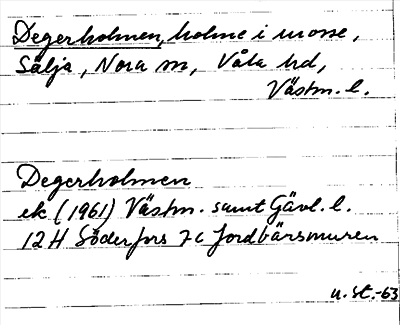 Degerholmen, holme i mosse,
Sälja, Nora sn, Våla hd,
Västm. l.
Degerholmen
ek (1961) Västm. samt Gävl. l.
12 H Söderfors 7 c Jordbärsmuren
u. St. -63